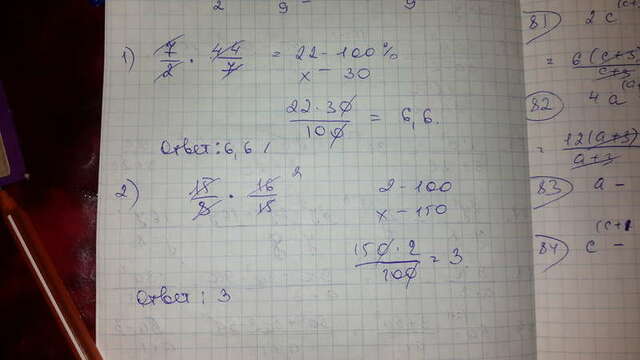 2 9 9
1) 7/2 · 44/7 = 22 - 100%
x - 30
22·30/100 = 6,6.
Ответ: 6,6
2) 15/8 · 16/15 2
2 - 100
x - 150
150·2/100 = 3
Ответ: 3
81) 2c
= 6(c+3)/c+3
82) 4a
= 12(a+3)/a+3
83) a -
84) c -